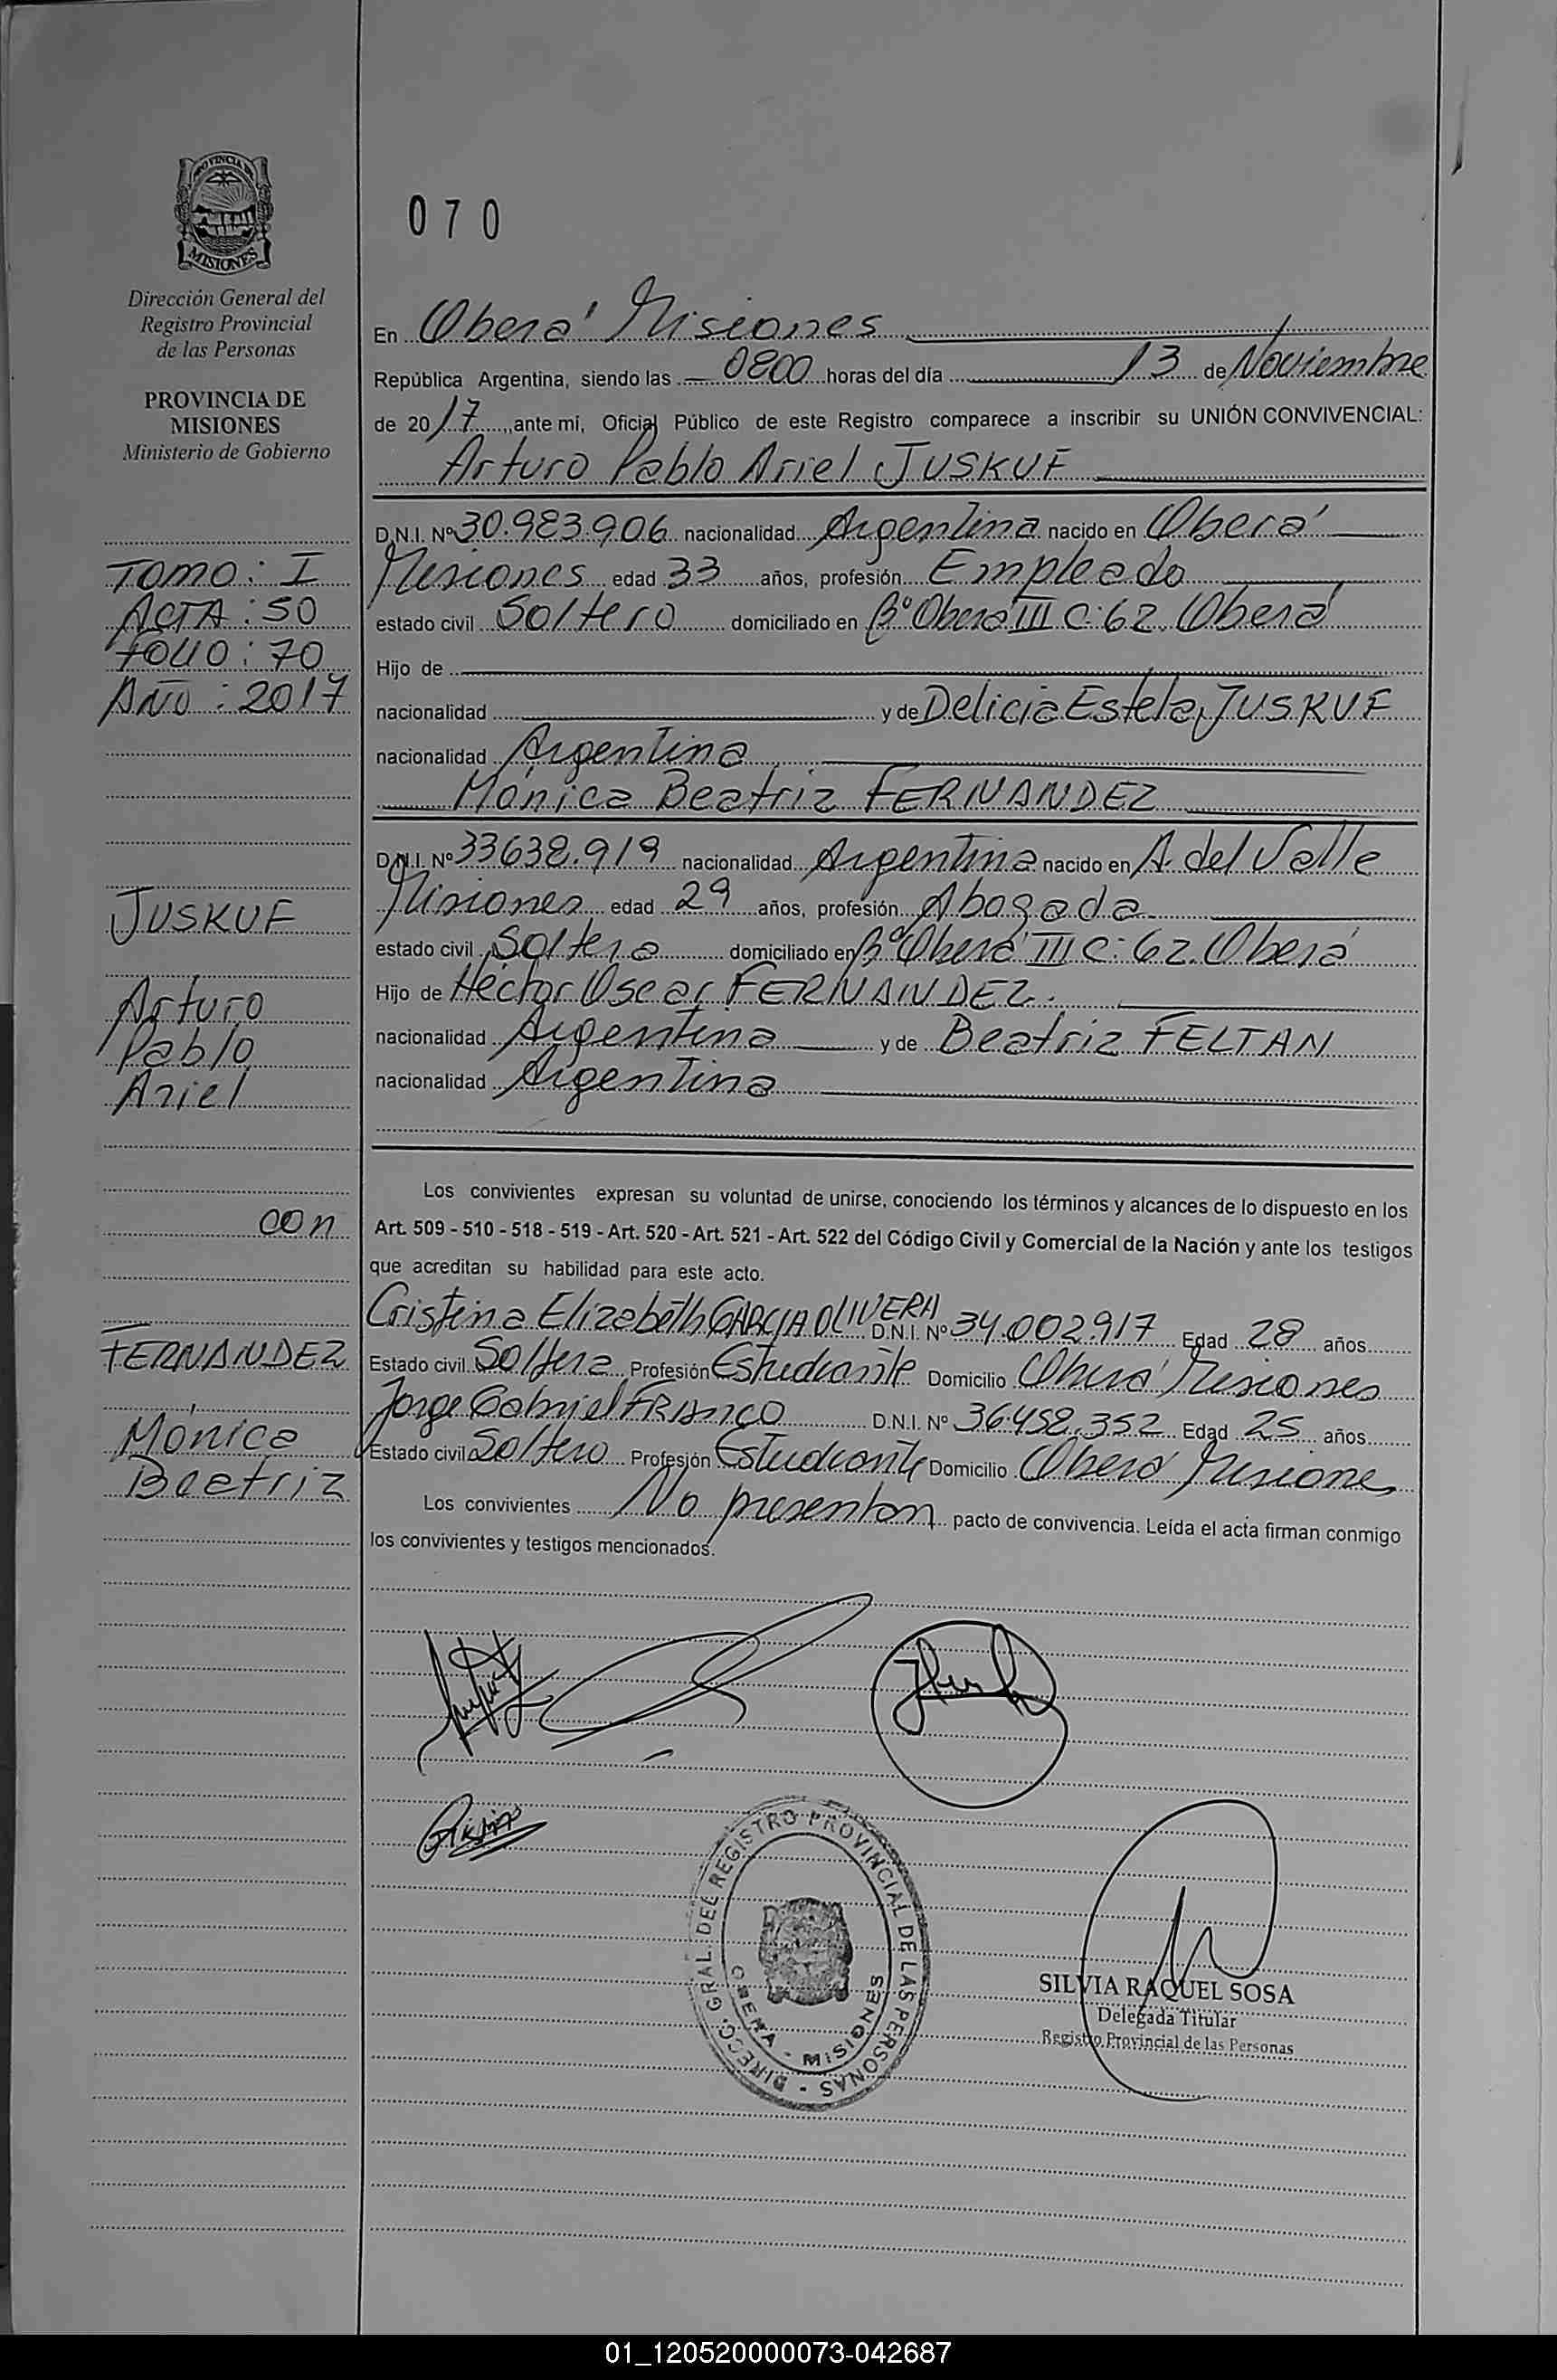 PROVINCIA DE
MISIONES
Dirección General del
Registro Provincial
de las Personas
PROVINCIA DE
MISIONES
Ministerio de Gobierno
TOMO: I
ACTA: 50
FOLIO: 70
AÑO: 2017
JUSKUF
Arturo
Pablo
Ariel
con
FERNANDEZ
Mónica
Beatriz
070
En Oberá Misiones
República Argentina, siendo las 0800 horas del día 13 de Noviembre
de 2017, ante mí, Oficial Público de este Registro comparece a inscribir su UNIÓN CONVIVENCIAL:
Arturo Pablo Ariel JUSKUF
D.N.I. Nº 30.983.906 nacionalidad Argentina nacido en Oberá
Misiones edad 33 años, profesión Empleado
estado civil Soltero domiciliado en Bº Oberá III C: 62. Oberá
Hijo de
nacionalidad y de Delicia Estela JUSKUF
nacionalidad Argentina
Mónica Beatriz FERNANDEZ
D.N.I. Nº 33638.919 nacionalidad Argentina nacido en A. del Valle
Misiones, edad 29 años, profesión Abogada
estado civil Soltera domiciliado en Bº Oberá III C: 62. Oberá
Hijo de Héctor Oscar FERNANDEZ.
nacionalidad Argentina y de Beatriz FELTAN
nacionalidad Argentina
Los convivientes expresan su voluntad de unirse, conociendo los términos y alcances de lo dispuesto en los
Art. 509 - 510 - 518 - 519 - Art. 520 - Art. 521 - Art. 522 del Código Civil y Comercial de la Nación y ante los testigos
que acreditan su habilidad para este acto.
Cristina Elizabeth GARCIA OLIVERA D.N.I. Nº 34.002.917 Edad 28 años
Estado civil Soltera Profesión Estudiante Domicilio Oberá Misiones
Jorge Gabriel FRANCO D.N.I. Nº 36.458.352 Edad 25 años
Estado civil Soltero Profesión Estudiante Domicilio Oberá Misiones
Los convivientes No presentan pacto de convivencia. Leída el acta firman conmigo
los convivientes y testigos mencionados.
DIRECC. GRAL. DEL REGISTRO PROVINCIAL DE LAS PERSONAS
OBERA - MISIONES
SILVIA RAQUEL SOSA
Delegada Titular
Registro Provincial de las Personas
01_120520000073-042687